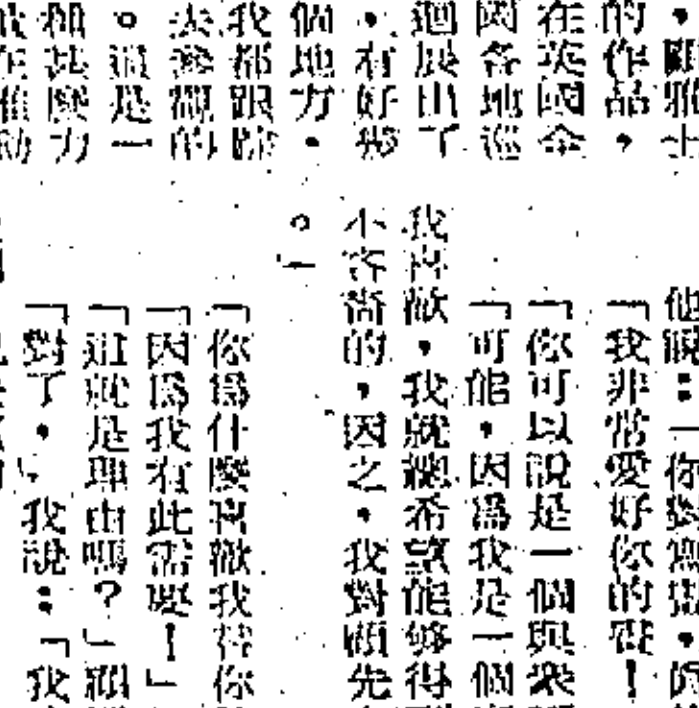 ，顧雅士
的作品，
在英國全
國各地巡
迴展出了
，有好幾
個地方，
我都跟踪
去參觀的
。這是一
和甚麼力
他說：「你對無
「我非常愛好你的書！
「你可以說是一個與眾
「可能，因為我是一個
我喜歡，我就總希望能夠得
不吝嗇的，因之，我對顧先
。」
「你為什麼喜歡我替你
「因為我有此需要！」
「這就是理由嗎？」顧
「對了，」我說：「我